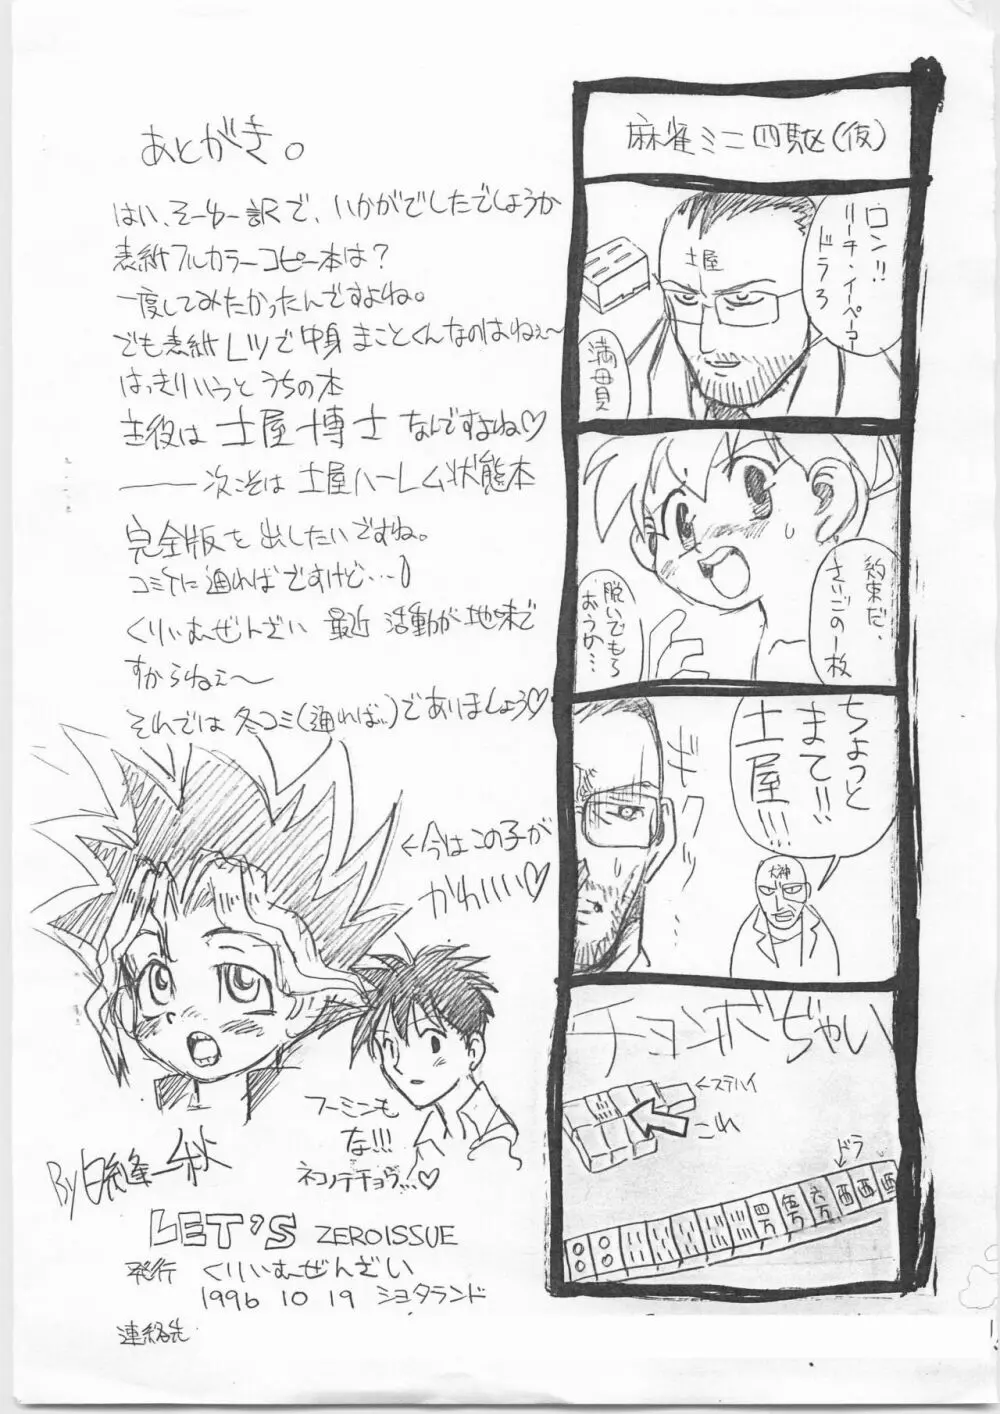 あとがき。
はい、そーゆー訳で、いかがでしたでしょうか
表紙フルカラーコピー本は？
一度してみたかったんですよね。
でも表紙レツで中身まことくんなのはねぇ～
はっきりいうとうちの本
主役は土屋博士なんですよね♡
――次こそは土屋ハーレム状態本
完全版を出したいですね。
コミケに通ればですけど…
くりぃむぜんざい最近活動が地味で
すからねぇ～
それでは冬コミ(通れば…)であいましょう♡
←今はこの子が
かわいいい♡
フーミンも
な!!!
ネコノテチョウ…♡
By 日縫一秋
LET'S ZERO ISSUE
発行 くりぃむぜんざい
1996 10 19 ショタランド
連絡先
麻雀ミニ四駆(仮)
ロン!!
リーチ、イーペーコー
ドラ3
土屋
満貫
約束だ、
さいごの一枚
脱いでもら
おうか…
ちょっと
まて!!
土屋!!!
ギクリッ…
大神
チョンボぢゃい
←ステハイ
これ
ドラ
四万
伍万
六万
西
西
西